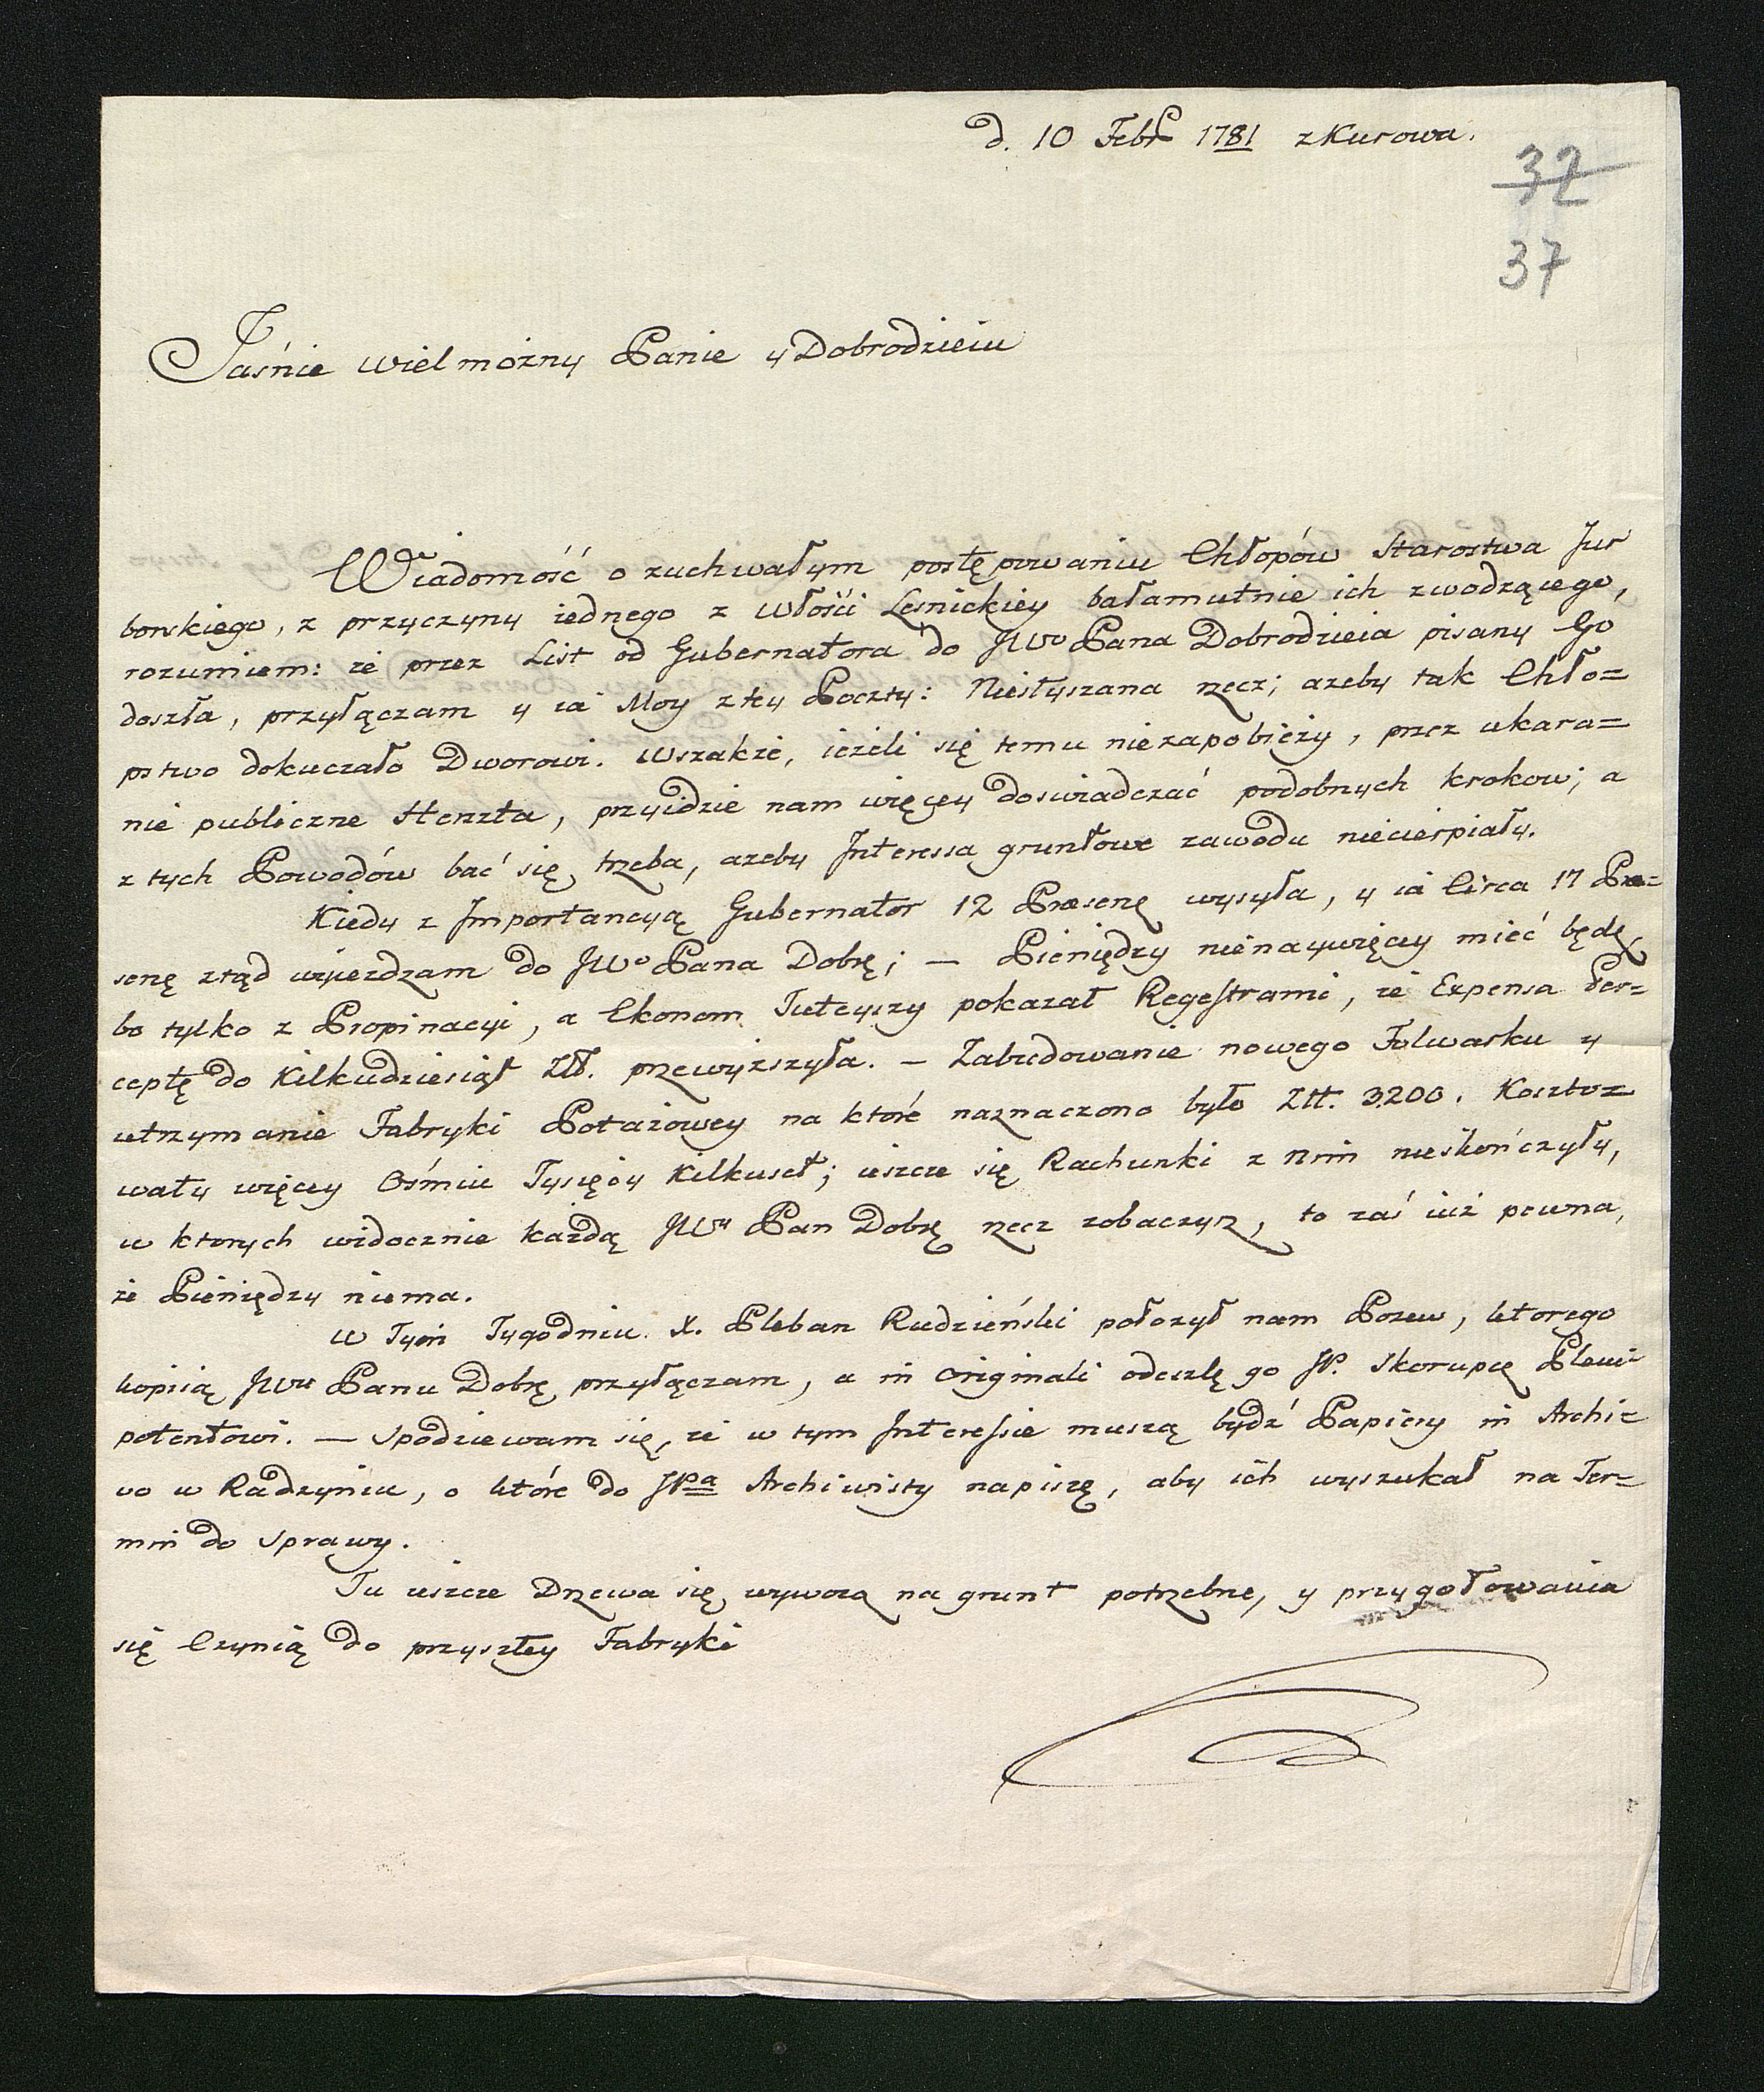 d. 10 Febr 1781 z Kurowa.
32
37
Jaśnie wielmożny Panie y Dobrodzieiu
Wiadomość o zuchwałym postępowaniu Chłopów Starostwa Jur
borskiego, z przyczyny iednego z włości Leśnickiey bałamutnie ich zwodzącego,
rozumiem: że przez List od Gubernatora do JWo Pana Dobrodzieia pisany Go
doszła, przyłączam y ia Moy z tey Poczty: Niesłyszana rzecz; ażeby tak Chło=
pstwo dokuczało Dworowi. Wszakże, ieżeli się temu niezapobieży, przez ukara=
nie publiczne Herszta, przyidzie nam więcey doswiadczać podobnych krokow; a
z tych Powodów bać się trzeba, ażeby Interessa gruntowe zawodu niecierpiały.
Kiedy z Importancyą Gubernator 12 Præsenę wysyła, y ia Circa 17 Præ=
senę ztąd wyiezdzam do JWo Pana Dobrę; — Pieniędzy nienaywięcey mieć będę
bo tylko z Propinacyi, a Ekonom Tuteyszy pokazał Regestrami, że Expensa Per=
ceptę do Kilkudziesiąt Złł. przewyższyła. — Zabudowanie nowego Folwarku y
utrzymanie Fabryki Potażowey na które naznaczono było Złł. 3200. Koszto=
wały więcey Ośmiu Tysięcy Kilkuset; ieszcze się Rachunki z Nim nieskończyły,
w ktorych widocznie każdą JWy Pan Dobrę rzecz zobaczysz, to zaś iuż pewna,
że Pieniędzy niema.
W Tym Tygodniu X. Pleban Rudzieński położył nam Pozew, ktorego
kopiią JWu Panu Dobrę przyłączam, a in Originali odeszlę go JP. Skorupce Pleni=
potentowi. — Spodziewam się, że w tym Interessie muszą bydź Papiery in Archi=
vo w Radzyniu, o które do JPa Archiwisty napiszę, aby ich wyszukał na Ter=
min do Sprawy.
Tu ieszcze Drzewa się wywożą na grunt potrzebne, y przygotowania
się Czynią do przyszłey Fabryki